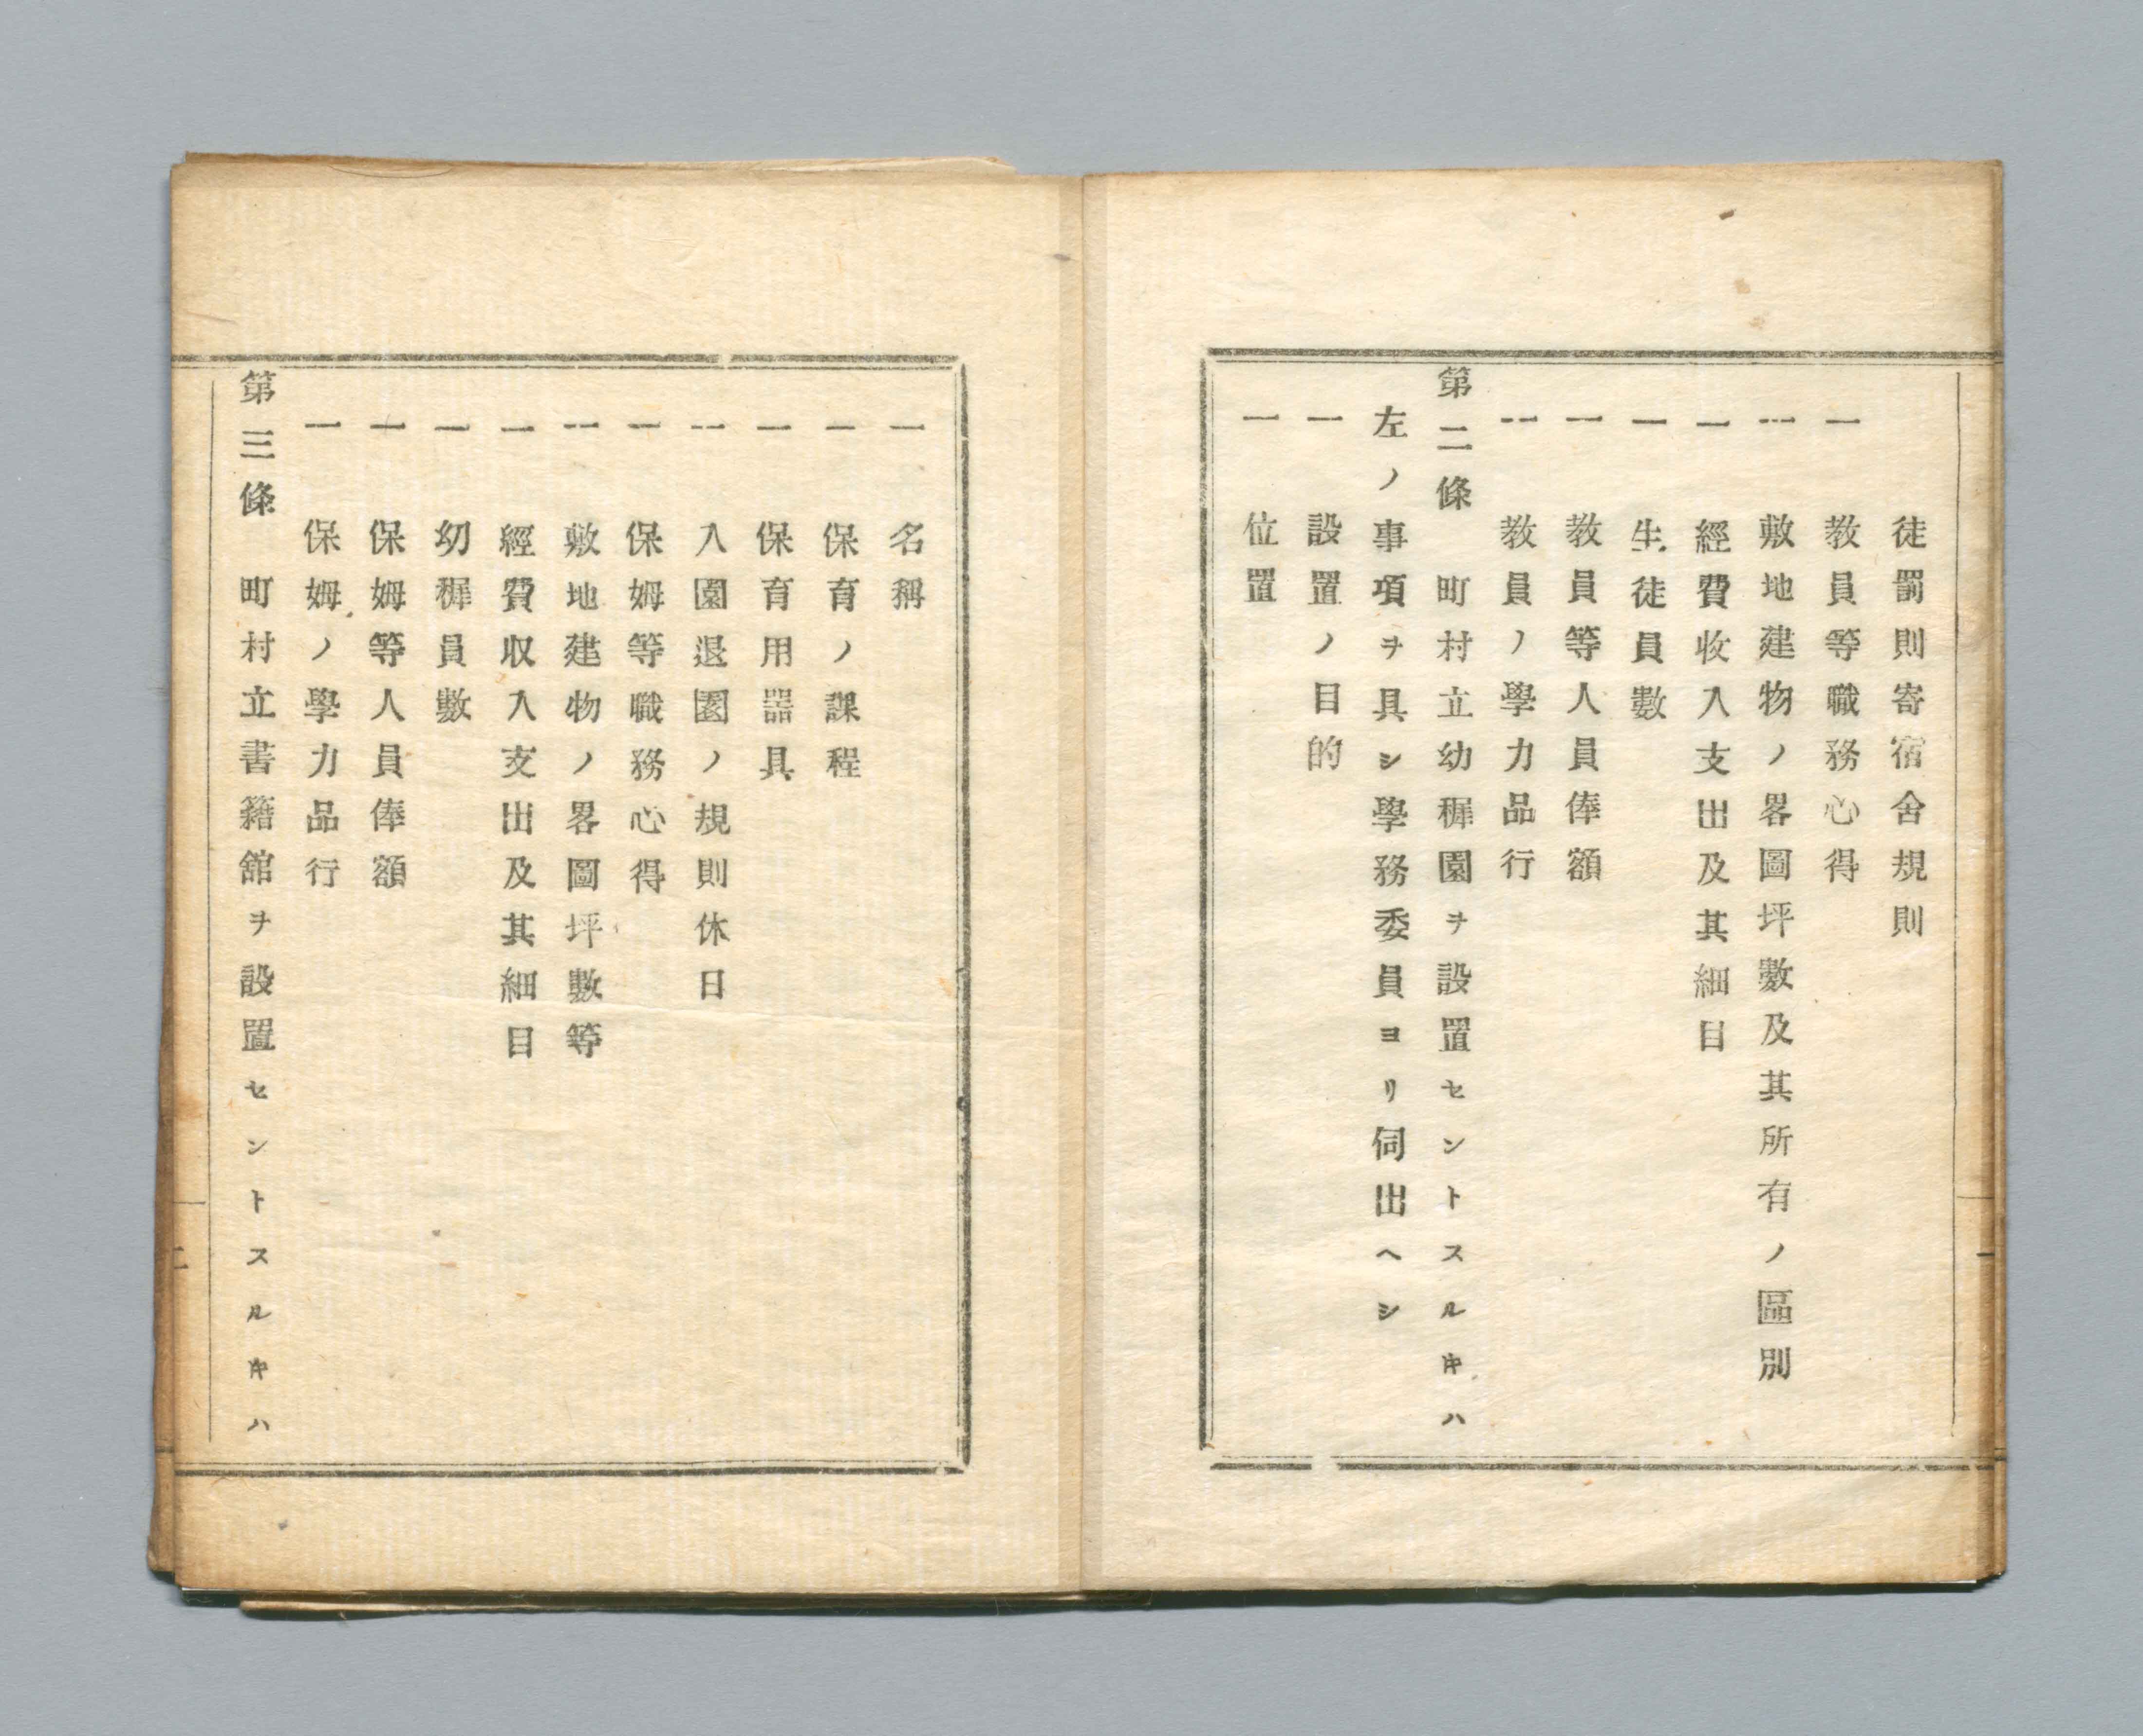 徒罰則寄宿舍規則
一 教員等職務心得
一 敷地建物ノ畧圖坪數及其所有ノ區別
一 經費收入支出及其細目
一 生徒員數
一 教員等人員俸額
一 教員ノ學力品行
第二條 町村立幼穉園ヲ設置セントスルキハ
左ノ事項ヲ具シ學務委員ヨリ伺出ヘシ
一 設置ノ目的
一 位置
一 名稱
一 保育ノ課程
一 保育用器具
一 入園退園ノ規則休日
一 保姆等職務心得
一 敷地建物ノ畧圖坪數等
一 經費収入支出及其細目
一 幼穉員數
一 保姆等人員俸額
一 保姆ノ學力品行
第三條 町村立書籍舘ヲ設置セントスルキハ